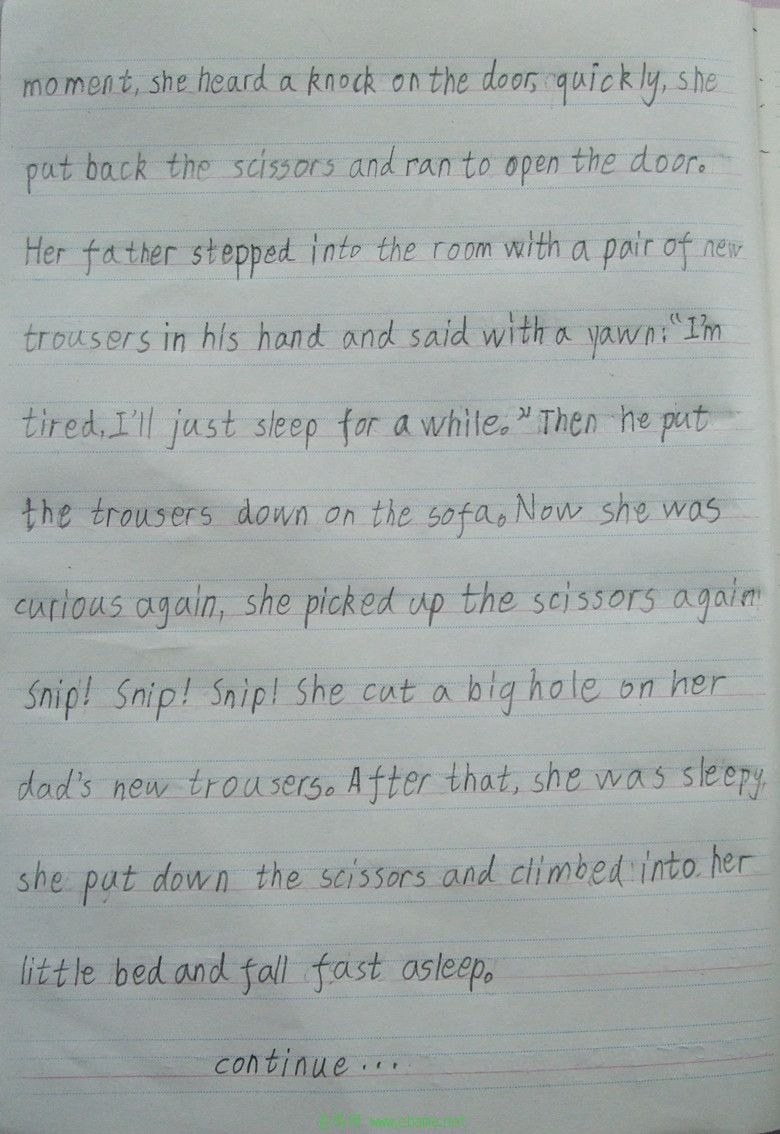 moment, she heard a knock on the door, quickly, she
put back the scissors and ran to open the door.
Her father stepped into the room with a pair of new
trousers in his hand and said with a yawn: "I'm
tired, I'll just sleep for a while." Then he put
the trousers down on the sofa. Now she was
curious again, she picked up the scissors again!
Snip! Snip! Snip! She cut a big hole on her
dad's new trousers. After that, she was sleepy,
she put down the scissors and climbed into her
little bed and fall fast asleep.
continue...